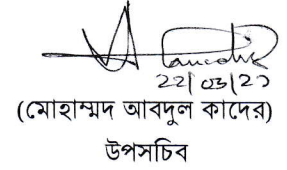 22/03/20
(মোহাম্মদ আবদুল কাদের)
উপসচিব